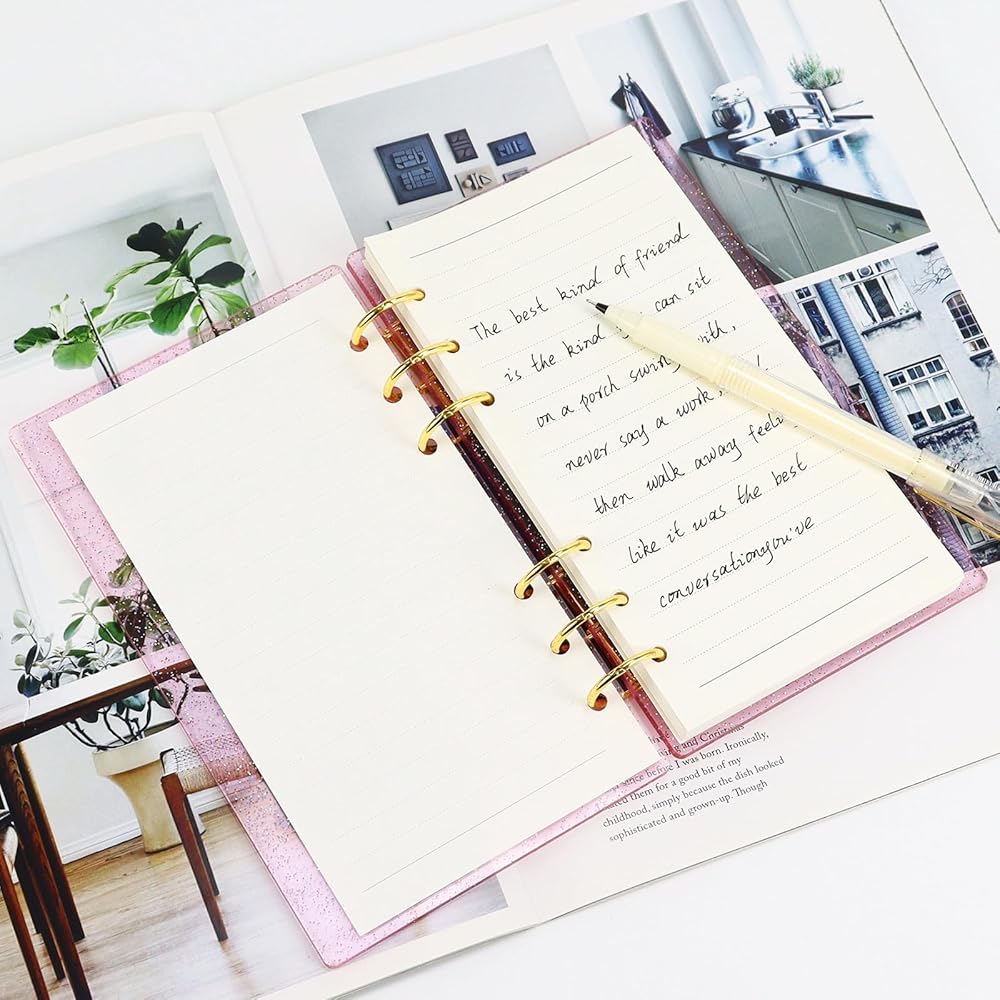 The best kind of friend
is the kind can sit
on a porch swing with,
never say a work,
then walk away feeling
like it was the best
conversationyou've
ving and Christmas
since before I was born. Ironically,
ated them for a good bit of my
childhood, simply because the dish looked
sophisticated and grown-up. Though